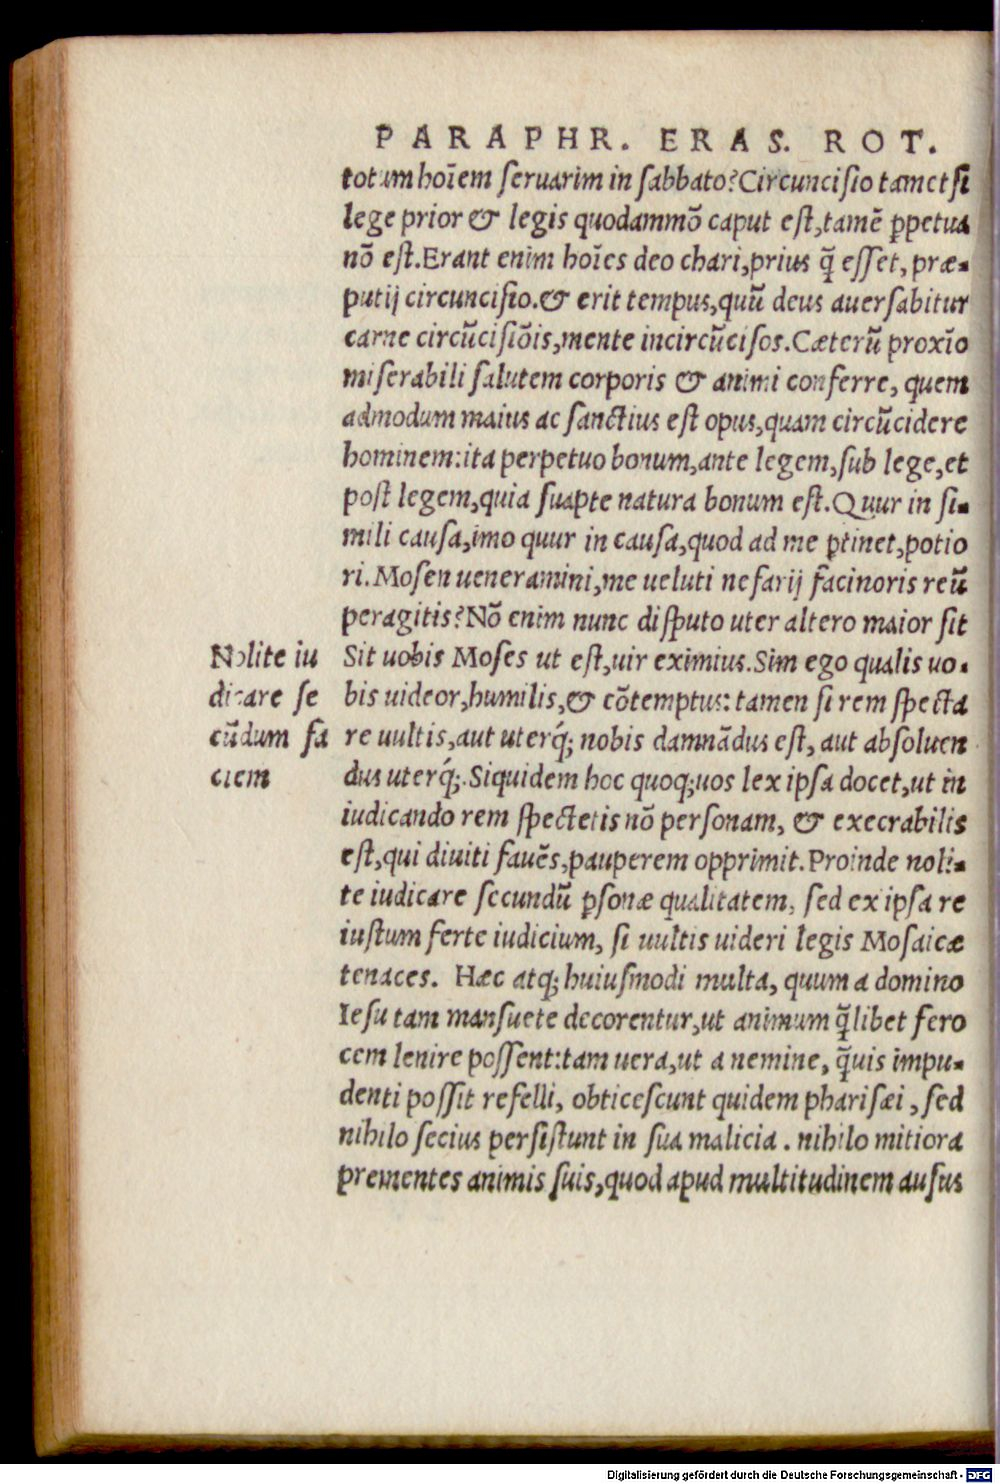 PARAPHR. ERAS. ROT.
totum hoīem ſeruarim in ſabbato? Circunciſio tametſi
lege prior & legis quodammō caput eſt, tamē ꝑpetua
nō eſt. Erant enim hoīes deo chari, prius q̄ eſſet, præ-
putij circunciſio. & erit tempus, quū deus auerſabitur
carne circūciſiōis, mente incircūciſos. Cæterū proxīo
miſerabili ſalutem corporis & animi conferre, quem
admodum maius ac ſanctius eſt opus, quam circūcidere
hominem: ita perpetuo bonum, ante legem, ſub lege, et
poſt legem, quia ſuapte natura bonum eſt. Quur in ſi-
mili cauſa, imo quur in cauſa, quod ad me ꝑtinet, potio
ri. Moſen ueneramini, me ueluti nefarij facinoris reū
peragitis? Nō enim nunc diſputo uter altero maior ſit
Sit uobis Moſes ut eſt, uir eximius. Sim ego qualis uo-
bis uideor, humilis, & cōtemptus: tamen ſi rem ſpecta
re uultis, aut uterq́; nobis damnādus eſt, aut abſoluen
dus uterq́;. Siquidem hoc quoq; uos lex ipſa docet, ut in
iudicando rem ſpectetis nō perſonam, & execrabilis
eſt, qui diuiti fauēs, pauperem opprimit. Proinde noli-
te iudicare ſecundū ꝑſonæ qualitatem, ſed ex ipſa re
iuſtum ferte iudicium, ſi uultis uideri legis Moſaicæ
tenaces. Hæc atq; huiuſmodi multa, quum a domino
Ieſu tam manſuete decorentur, ut animum q̄libet fero
cem lenire poſſent: tam uera, ut a nemine, q̄uis impu-
denti poſſit refelli, obticeſcunt quidem phariſæi, ſed
nihilo ſecius perſiſtunt in ſua malicia. nihilo mitiora
prementes animis ſuis, quod apud multitudinem auſus
Nolite iu
dicare ſe
cūdum fa
ciem
Digitalisierung gefördert durch die Deutsche Forschungsgemeinschaft - DFG